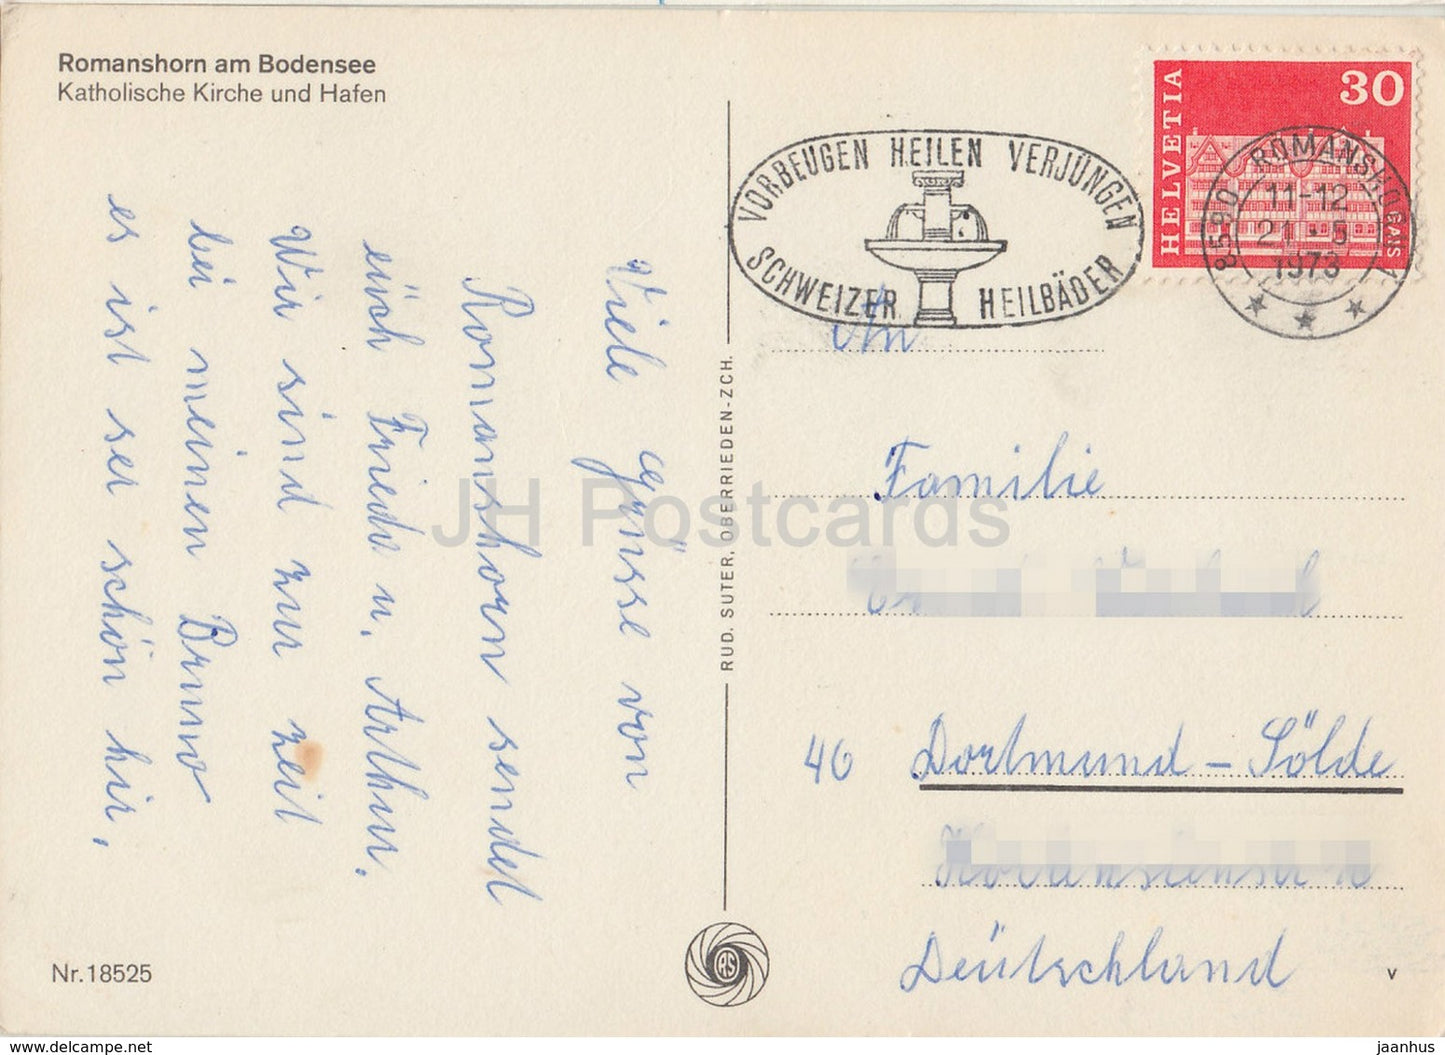 Romanshorn am Bodensee
Katholische Kirche und Hafen
Viele Grüsse von
Romanshorn sendet
eüch Frieda u. Arthur.
Wir sind zur zeit
bei meinen Bruno
es ist ser schön hir.
Nr.18525
RUD. SUTER, OBERRIEDEN-ZCH.
RS
VORBEUGEN HEILEN VERJÜNGEN
SCHWEIZER HEILBÄDER
HELVETIA
30
GAIS
8590 ROMANSHORN 1
11-12
21.-5
1973
An
Familie
46 Dortmund-Sölde
Deütschland
v
JH Postcards
www.delcampe.net
jaanhus